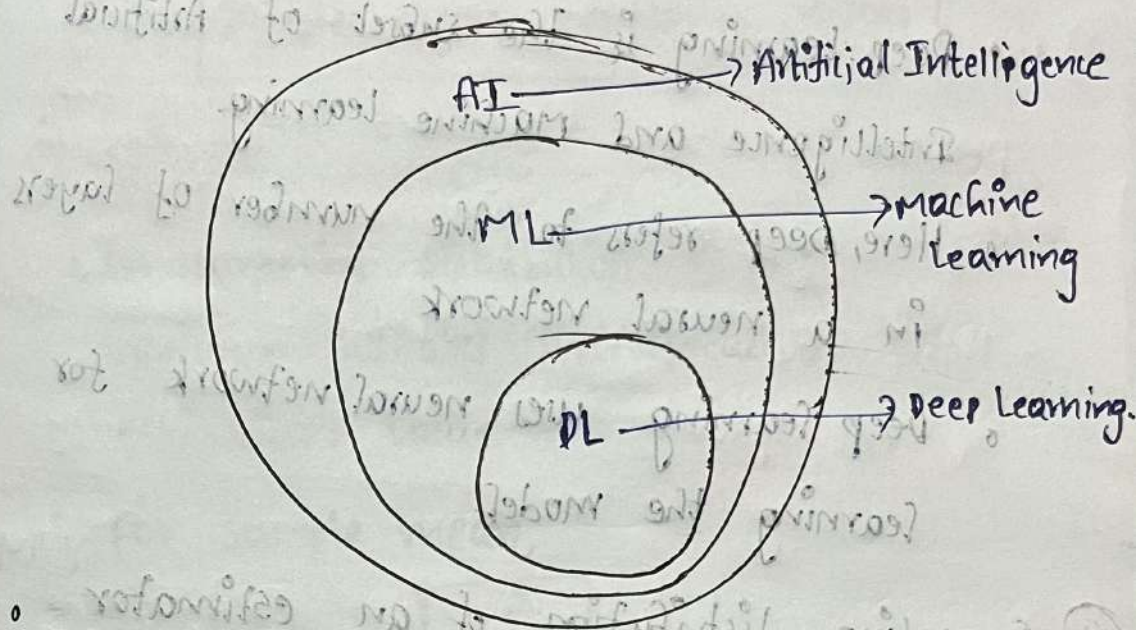 AI → Artificial Intelligence
ML → Machine
Learning
DL → Deep Learning.